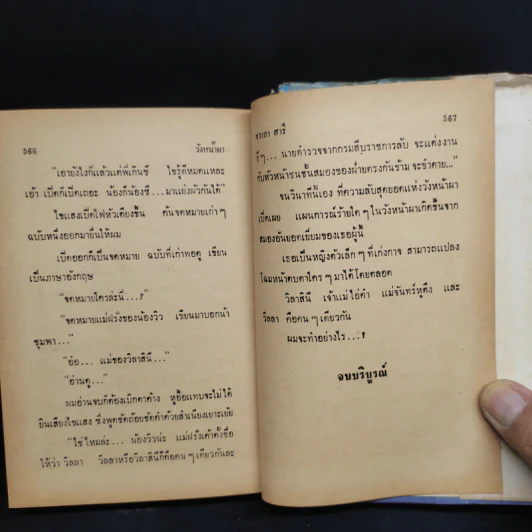 566 วังหน้าผา
"เอายังไงก็แล้วแต่พี่เกินซี ไขรู้ก็หมดแหละ
เอ้า เปิดก็เปิดเถอะ น้องก็น้องซี...มาแย่งผัวกันได้"
ไขแสงเปิดไฟหัวเตียงขึ้น ค้นจดหมายเก่า ๆ
ฉบับหนึ่งออกมายื่นให้ผม
เปิดออกก็เป็นจดหมาย ฉบับที่เก่าพอดู เขียน
เป็นภาษาอังกฤษ
"จดหมายใครล่ะนี่...?"
"จดหมายแม่ฝรั่งของน้องวิว เขียนมาบอกน้า
ชุมพา..."
"อ้อ... แม่ของวิลาสินี..."
"อ่านดู..."
ผมอ่านจบก็ต้องเบิกตาค้าง หูอื้อแทบจะไม่ได้
ยินเสียงไขแสง ซึ่งพูดชัดถ้อยชัดคำด้วยสำเนียงเยาะเย้ย
"ใช่ไหมล่ะ... น้องวิวน่ะ แม่ฝรั่งเค้าตั้งชื่อ
ให้ว่า วิลลา วิลลาหรือวิลาสินีก็คือคน ๆ เดียวกันละ
จุฑา สารี 567
ดีๆ... นายตำรวจจากกรมสืบราชการลับ จะแต่งงาน
กับหัวหน้าชนชั้นสมองของฝ่ายตรงกันข้าม จะขำตาย..."
จนวินาทีนี้เอง ที่ความลับสุดยอดแห่งวังหน้าผา
เปิดเผย แผนการณ์ร้ายใด ๆ ในวังหน้าผาเกิดขึ้นจาก
สมองอันยอดเยี่ยมของเธอผู้นี้
เธอเป็นหญิงตัวเล็ก ๆ ที่เก่งกาจ สามารถแปลง
โฉมหน้าตบตาใคร ๆ มาได้โดยตลอด
วิลาสินี เจ้าแม่ไอ่คำ แม่จันทร์หูดึง และ
วิลลา คือคน ๆ เดียวกัน
ผมจะทำอย่างไร...?
จบบริบูรณ์